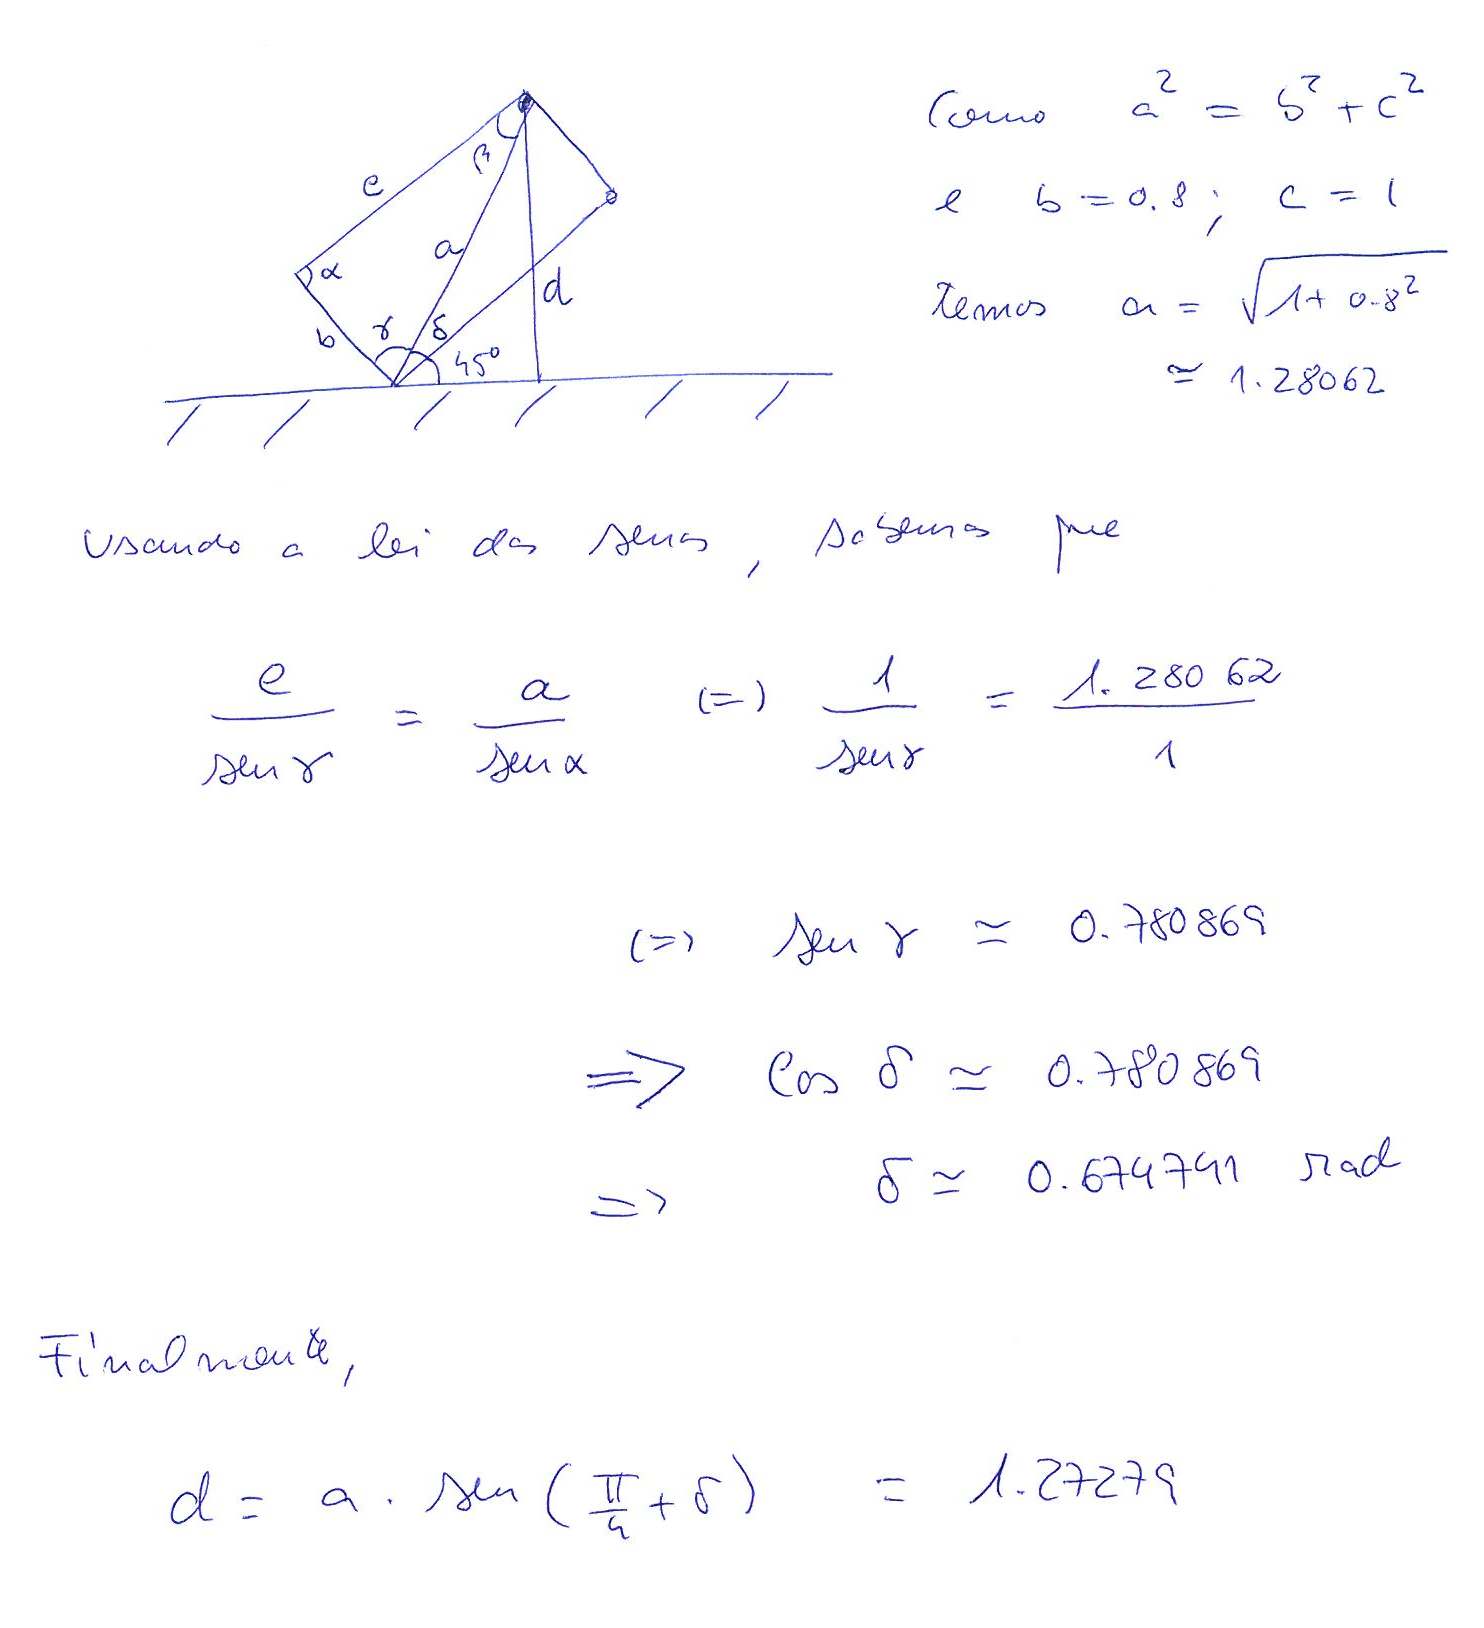 Como a² = b² + c²
e b = 0.8 ; c = 1
temos a = √(1 + 0.8²)
≃ 1.28062
c
β
a
α
d
b
γ
δ
45°
Usando a lei dos senos, sabemos que
c / sen γ = a / sen α (=) 1 / sen γ = 1.28062 / 1
(=) sen γ ≃ 0.780869
=> cos δ ≃ 0.780869
=> δ ≃ 0.674741 rad
Finalmente,
d = a . sen (π/4 + δ) = 1.27279